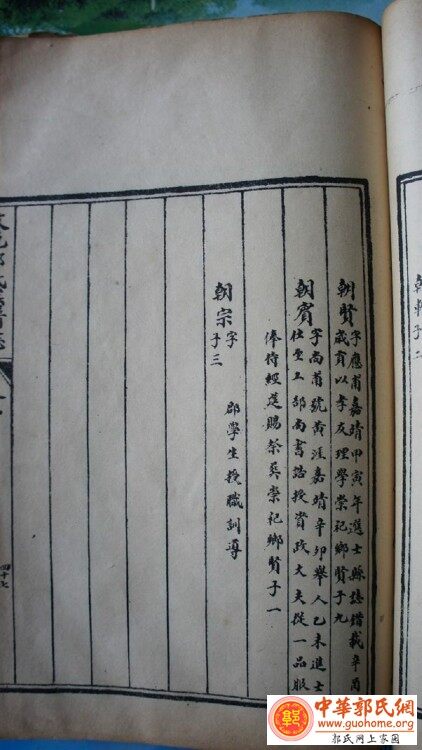 朝賢
字應甫嘉靖甲寅年進士縣誌錯載辛酉
歲貢以孝友理學崇祀鄉賢子九
朝賓
字尚甫號黃涯嘉靖辛卯舉人乙未進士
仕至工部尚書誥授資政大夫從一品服
俸侍經筵賜祭葬崇祀鄉賢子一
朝宗
字
子三
郡學生授職訓導
四十七
郭
中華郭氏網
www.guohome.org
郭氏网上家园